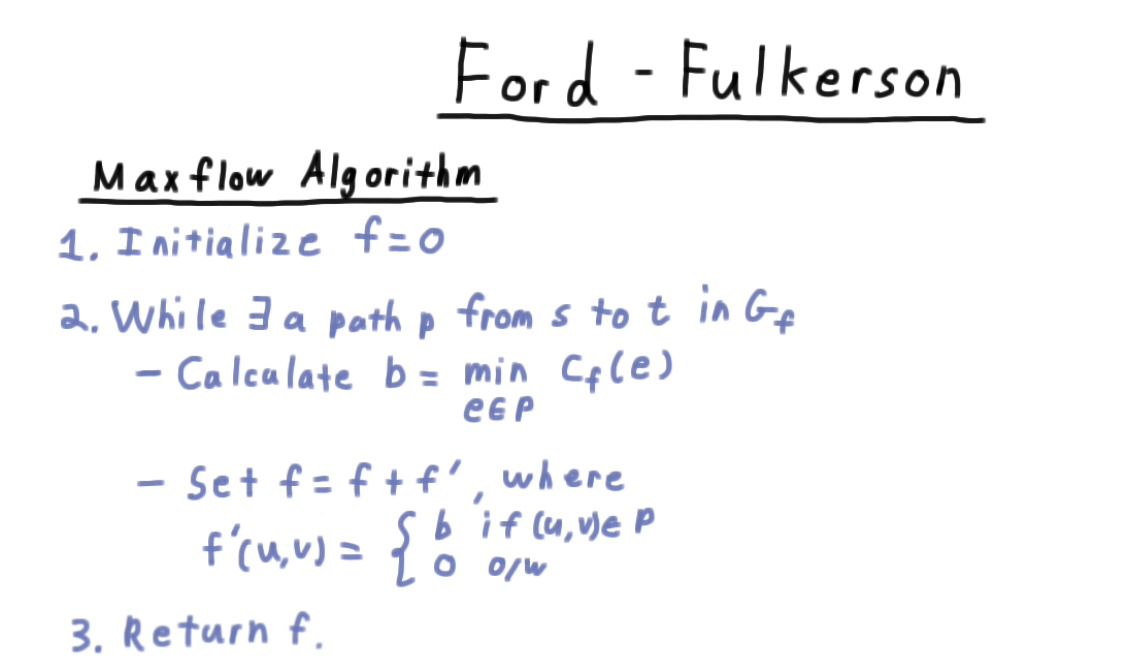 Ford - Fulkerson
Maxflow Algorithm
1. Initialize f=0
2. While ∃ a path p from s to t in G_f
- Calculate b = min C_f(e)
e∈P
- Set f = f + f', where
f'(u,v) = { b if (u,v)∈P
0 o/w
3. Return f.